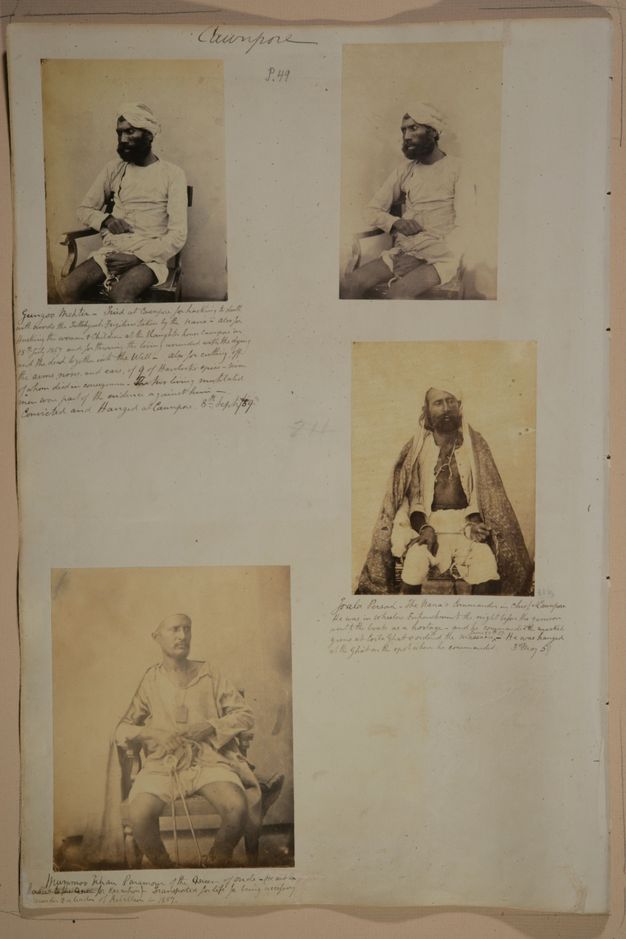 Cawnpore
P.49
Gungoo Mehter - Tried at Cawnpore for hacking to death
with swords the Futtehgurh fugitives taken by the Nana - also for
hacking the women & Children at the Slaughter house Cawnpore on
15th July 1857 and for throwing the living wounded with the dying
and the dead together into the Well - also for cutting off
the arms, noses, and ears, of 9 of Havelocks spies - seven
of whom died in consequence. The two living mutilated
men were part of the evidence against him -
Convicted and Hanged at Cawnpore 8th Sept /59
Joala Persad - The Nana's Commander in Chief - Cawnpore
He was in Wheelers Entrenchment the night before the garrison
went to the boats as a hostage - and he commanded the
guns at Ghat & ordered the massacre - He was hanged
at the Ghat on the spot where he commanded. 3d May
Mummoo Khan Paramour of the of Oude - He
for execution - Transported for life for being accessory
murder & a leader of Rebellion in 1857.